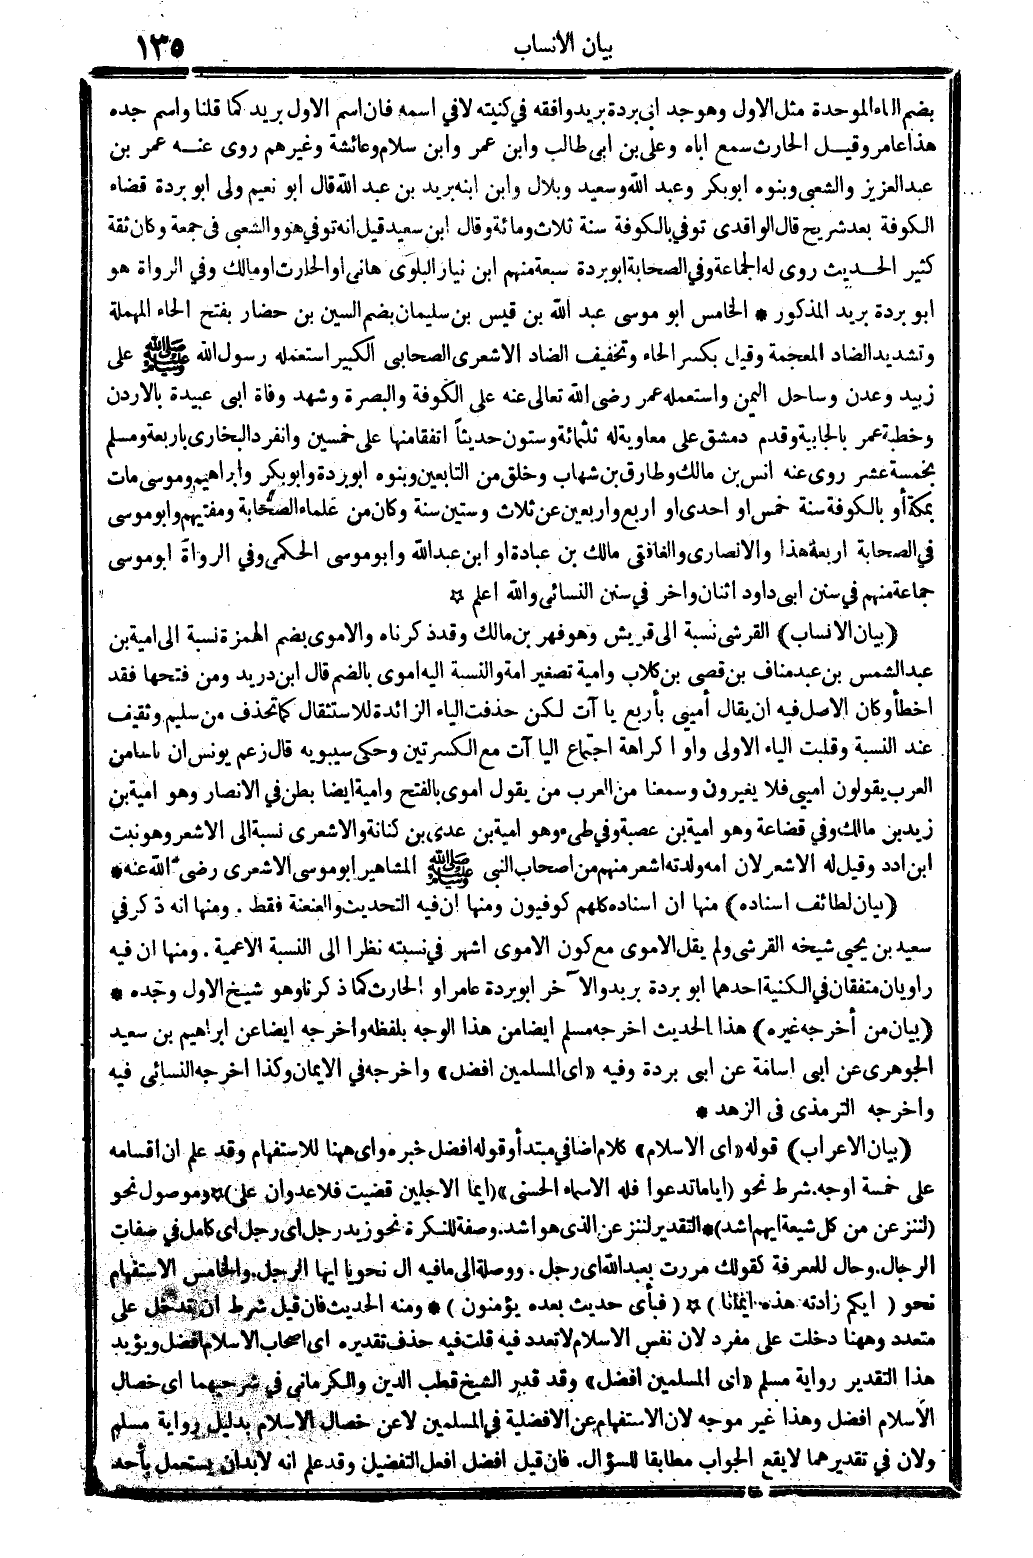 بيان الأنساب ١٣٥
بضم الباء الموحدة مثل الاول وهو جد ابى بردة بريد وافقه في كنيته لا في اسمه فان اسم الاول بريد كما قلنا واسم جده
هذا عامر وقيل الحارث سمع اباه وعلى بن ابى طالب وابن عمر وابن سلام وعائشة وغيرهم روى عنه عمر بن
عبد العزيز والشعبى وبنوه ابو بكر وعبد الله وسعيد وبلال وابن ابنه بريد بن عبد الله قال ابو نعيم ولى ابو بردة قضاء
الكوفة بعد شريح قال الواقدى توفي بالكوفة سنة ثلاث ومائة وقال ابن سعيد قيل انه توفي هو والشعبى فى جمعة وكان ثقة
كثير الحديث روى له الجماعة وفي الصحابة ابو بردة سبعة منهم ابن نيار البلوى هانى او الحارث او مالك وفي الرواة هو
ابو بردة بريد المذكور * الخامس ابو موسى عبد الله بن قيس بن سليمان بضم السين بن حضار بفتح الحاء المهملة
وتشديد الضاد المعجمة وقيل بكسر الحاء وتخفيف الضاد الاشعرى الصحابى الكبير استعمله رسول الله ﷺ على
زبيد وعدن وساحل اليمن واستعمله عمر رضى الله تعالى عنه على الكوفة والبصرة وشهد وفاة ابى عبيدة بالاردن
وخطبة عمر بالجابية وقدم دمشق على معاوية له ثلثمائة وستون حديثاً اتفقا منها على خمسين وانفرد البخارى باربعة ومسلم
بخمسة عشر روى عنه انس بن مالك وطارق بن شهاب وخلق من التابعين وبنوه ابو بردة وابو بكر وابراهيم وموسى مات
بمكة أو بالكوفة سنة خمس او احدى او اربع واربعين عن ثلاث وستين سنة وكان من علماء الصحابة ومفتيهم وابو موسى
في الصحابة اربعة هذا والانصارى والغافقى مالك بن عبادة او ابن عبد الله وابو موسى الحكمى وفي الرواة ابو موسى
جماعة منهم في سنن ابى داود اثنان واخر في سنن النسائى والله اعلم ☆
(بيان الانساب) القرشى نسبة الى قريش وهو فهر بن مالك وقد ذكرناه والاموى بضم الهمزة نسبة الى امية بن
عبد الشمس بن عبد مناف بن قصى بن كلاب وامية تصغير امة والنسبة اليه اموى بالضم قال ابن دريد ومن فتحها فقد
اخطأ وكان الاصل فيه ان يقال أميي بأربع يا آت لكن حذفت الياء الزائدة للاستثقال كما تحذف من سليم وثقيف
عند النسبة وقلبت الياء الاولى واوا كراهة اجتماع اليا آت مع الكسرتين وحكى سيبويه قال زعم يونس ان ناسا من
العرب يقولون اميي فلا يغيرون وسمعنا من العرب من يقول اموى بالفتح وامية ايضا بطن في الانصار وهو امية بن
زيد بن مالك وفي قضاعة وهو امية بن عصبة وفي طىء وهو امية بن عدى بن كنانة والاشعرى نسبة الى الاشعر وهو نبت
ابن ادد وقيل له الاشعر لان امه ولدته اشعر منهم من اصحاب النبى ﷺ المشاهير ابو موسى الاشعرى رضى الله عنه *
(بيان لطائف اسناده) منها ان اسناده كلهم كوفيون ومنها ان فيه التحديث والعنعنة فقط . ومنها انه ذكر في
سعيد بن يحيى شيخه القرشى ولم يقل الاموى مع كون الاموى اشهر في نسبته نظرا الى النسبة الاعمية . ومنها ان فيه
راويان متفقان في الكنية احدهما ابو بردة بريد والآخر ابو بردة عامر او الحارث كما ذكرنا وهو شيخ الاول وجده *
(بيان من أخرجه غيره) هذا الحديث اخرجه مسلم ايضا من هذا الوجه بلفظه واخرجه ايضا عن ابراهيم بن سعيد
الجوهرى عن ابى اسامة عن ابى بردة وفيه «اى المسلمين افضل» واخرجه في الايمان وكذا اخرجه النسائى فيه
واخرجه الترمذى فى الزهد *
(بيان الاعراب) قوله «اى الاسلام» كلام اضافي مبتدأ وقوله افضل خبره واى ههنا للاستفهام وقد علم ان اقسامه
على خمسة اوجه. شرط نحو (اياما تدعوا فله الاسماء الحسنى» (ايما الاجلين قضيت فلا عدوان على)☆ وموصول نحو
(لننزعن من كل شيعة ايهم اشد)* التقدير لننزعن الذى هو اشد. وصفة للنكرة نحو زيد رجل اى رجل اى كامل في صفات
الرجال. وحال للمعرفة كقولك مررت بعبد الله اى رجل . ووصلة الى ما فيه ال نحو يا ايها الرجل. والخامس الاستفهام
نحو ( ايكم زادته هذه ايمانا ) ☆ ( فبأى حديث بعده يؤمنون ) * ومنه الحديث فان قيل شرط ان تدخل على
متعدد وههنا دخلت على مفرد لان نفس الاسلام لا تعدد فيه قلت فيه حذف تقديره اى اصحاب الاسلام افضل ويؤيد
هذا التقدير رواية مسلم «اى المسلمين افضل» وقد قدر الشيخ قطب الدين والكرمانى في شرحيهما اى خصال
الاسلام افضل وهذا غير موجه لان الاستفهام عن الافضلية في المسلمين لا عن خصال الاسلام بدليل رواية مسلم
ولان في تقديرهما لا يقع الجواب مطابقا للسؤال. فان قيل افضل افعل التفضيل وقد علم انه لا بد ان يستعمل بأحد